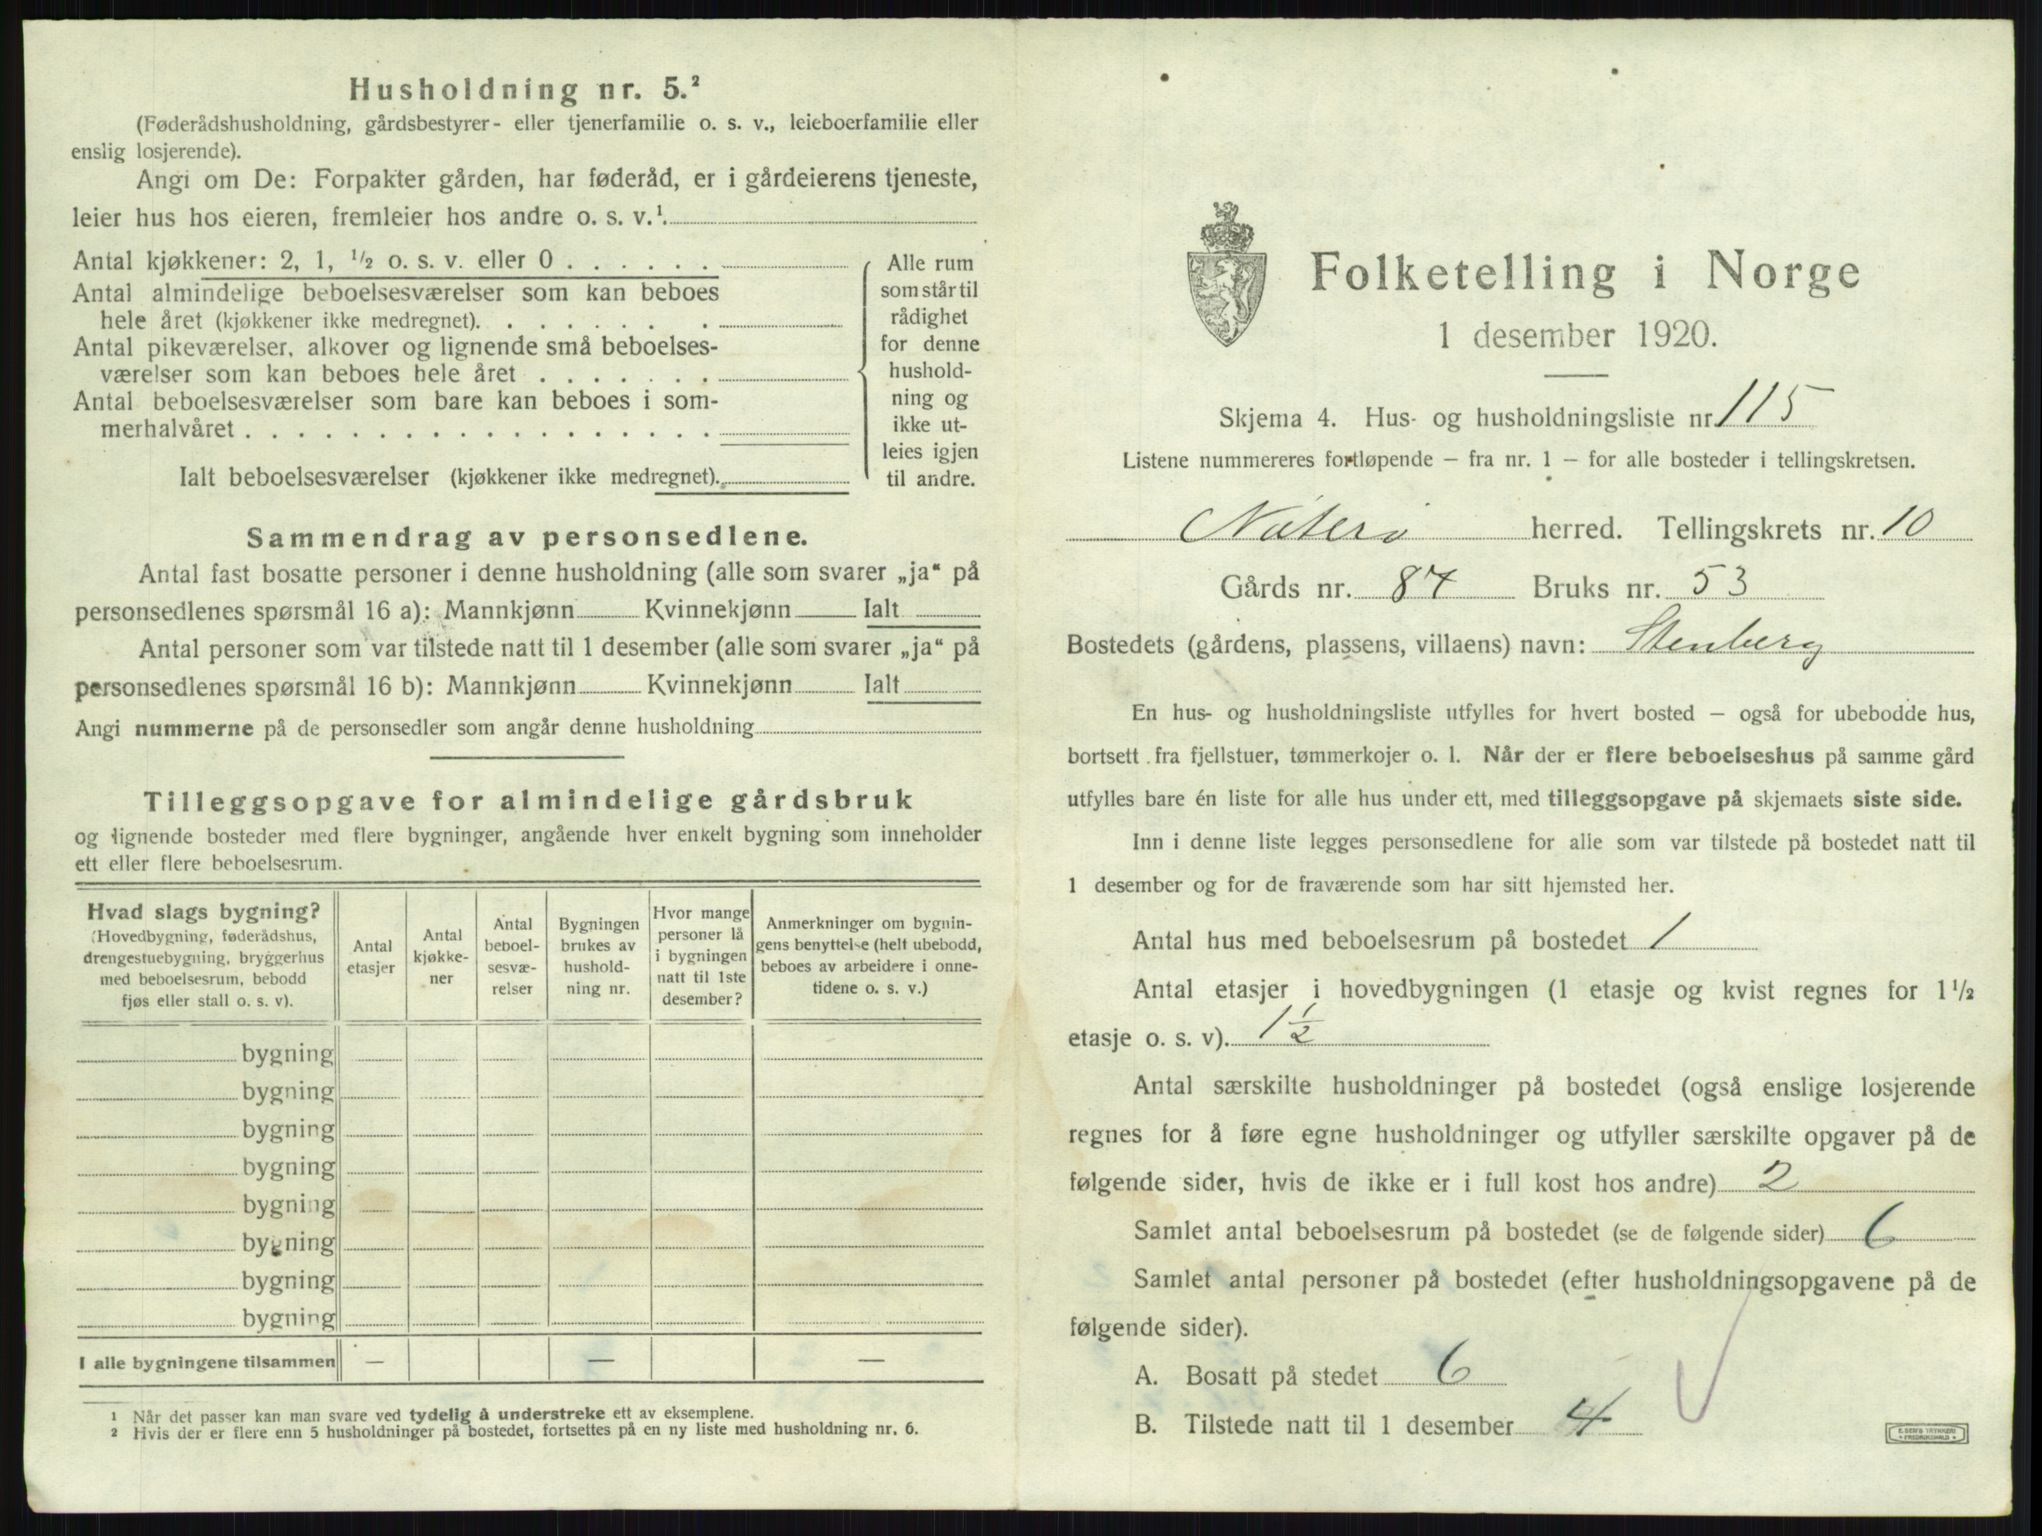 Husholdning nr. 5.²
(Føderådshusholdning, gårdsbestyrer- eller tjenerfamilie o. s. v., leieboerfamilie eller
enslig losjerende).
Angi om De: Forpakter gården, har føderåd, er i gårdeierens tjeneste,
leier hus hos eieren, fremleier hos andre o. s. v.¹
Antal kjøkkener: 2, 1, ½ o. s. v. eller 0 . . . . . .
Antal almindelige beboelsesværelser som kan beboes
hele året (kjøkkener ikke medregnet). . . . . . . .
Antal pikeværelser, alkover og lignende små beboelses-
værelser som kan beboes hele året . . . . . . .
Antal beboelsesværelser som bare kan beboes i som-
merhalvåret . . . . . . . . . . . . . . . . . .
Ialt beboelsesværelser (kjøkkener ikke medregnet).
Alle rum
som står til
rådighet
for denne
hushold-
ning og
ikke ut-
leies igjen
til andre.
Sammendrag av personsedlene.
Antal fast bosatte personer i denne husholdning (alle som svarer „ja“ på
personsedlenes spørsmål 16 a): Mannkjønn Kvinnekjønn Ialt
Antal personer som var tilstede natt til 1 desember (alle som svarer „ja“ på
personsedlenes spørsmål 16 b): Mannkjønn Kvinnekjønn Ialt
Angi nummerne på de personsedler som angår denne husholdning
Tilleggsopgave for almindelige gårdsbruk
og lignende bosteder med flere bygninger, angående hver enkelt bygning som inneholder
ett eller flere beboelsesrum.
Hvad slags bygning?
(Hovedbygning, føderådshus,
drengestuebygning, bryggerhus
med beboelsesrum, bebodd
fjøs eller stall o. s. v).
Antal
etasjer
Antal
kjøkke-
ner
Antal
beboel-
sesvæ-
relser
Bygningen
brukes av
hushold-
ning nr.
Hvor mange
personer lå
i bygningen
natt til 1ste
desember?
Anmerkninger om bygnin-
gens benyttelse (helt ubebodd,
beboes av arbeidere i onne-
tidene o. s. v.)
bygning
bygning
bygning
bygning
bygning
bygning
bygning
bygning
I alle bygningene tilsammen — — —
¹ Når det passer kan man svare ved tydelig å understreke ett av eksemplene.
² Hvis der er flere enn 5 husholdninger på bostedet, fortsettes på en ny liste med husholdning nr. 6.
Folketelling i Norge
1 desember 1920.
Skjema 4. Hus- og husholdningsliste nr. 115
Listene nummereres fortløpende – fra nr. 1 – for alle bosteder i tellingskretsen.
Nøterø herred. Tellingskrets nr. 10
Gårds nr. 87 Bruks nr. 53
Bostedets (gårdens, plassens, villaens) navn: Stenberg
En hus- og husholdningsliste utfylles for hvert bosted – også for ubebodde hus,
bortsett fra fjellstuer, tømmerkojer o. l. Når der er flere beboelseshus på samme gård
utfylles bare én liste for alle hus under ett, med tilleggsopgave på skjemaets siste side.
Inn i denne liste legges personsedlene for alle som var tilstede på bostedet natt til
1 desember og for de fraværende som har sitt hjemsted her.
Antal hus med beboelsesrum på bostedet 1
Antal etasjer i hovedbygningen (1 etasje og kvist regnes for 1½
etasje o. s. v). 1½
Antal særskilte husholdninger på bostedet (også enslige losjerende
regnes for å føre egne husholdninger og utfyller særskilte opgaver på de
følgende sider, hvis de ikke er i full kost hos andre) 2
Samlet antal beboelsesrum på bostedet (se de følgende sider) 6
Samlet antal personer på bostedet (efter husholdningsopgavene på de
følgende sider).
A. Bosatt på stedet 6
B. Tilstede natt til 1 desember 4